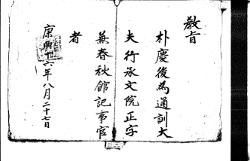 敎旨
朴慶後爲通訓大
夫行承文院正字
兼春秋館記事官
者
康熙十六年八月二十七日